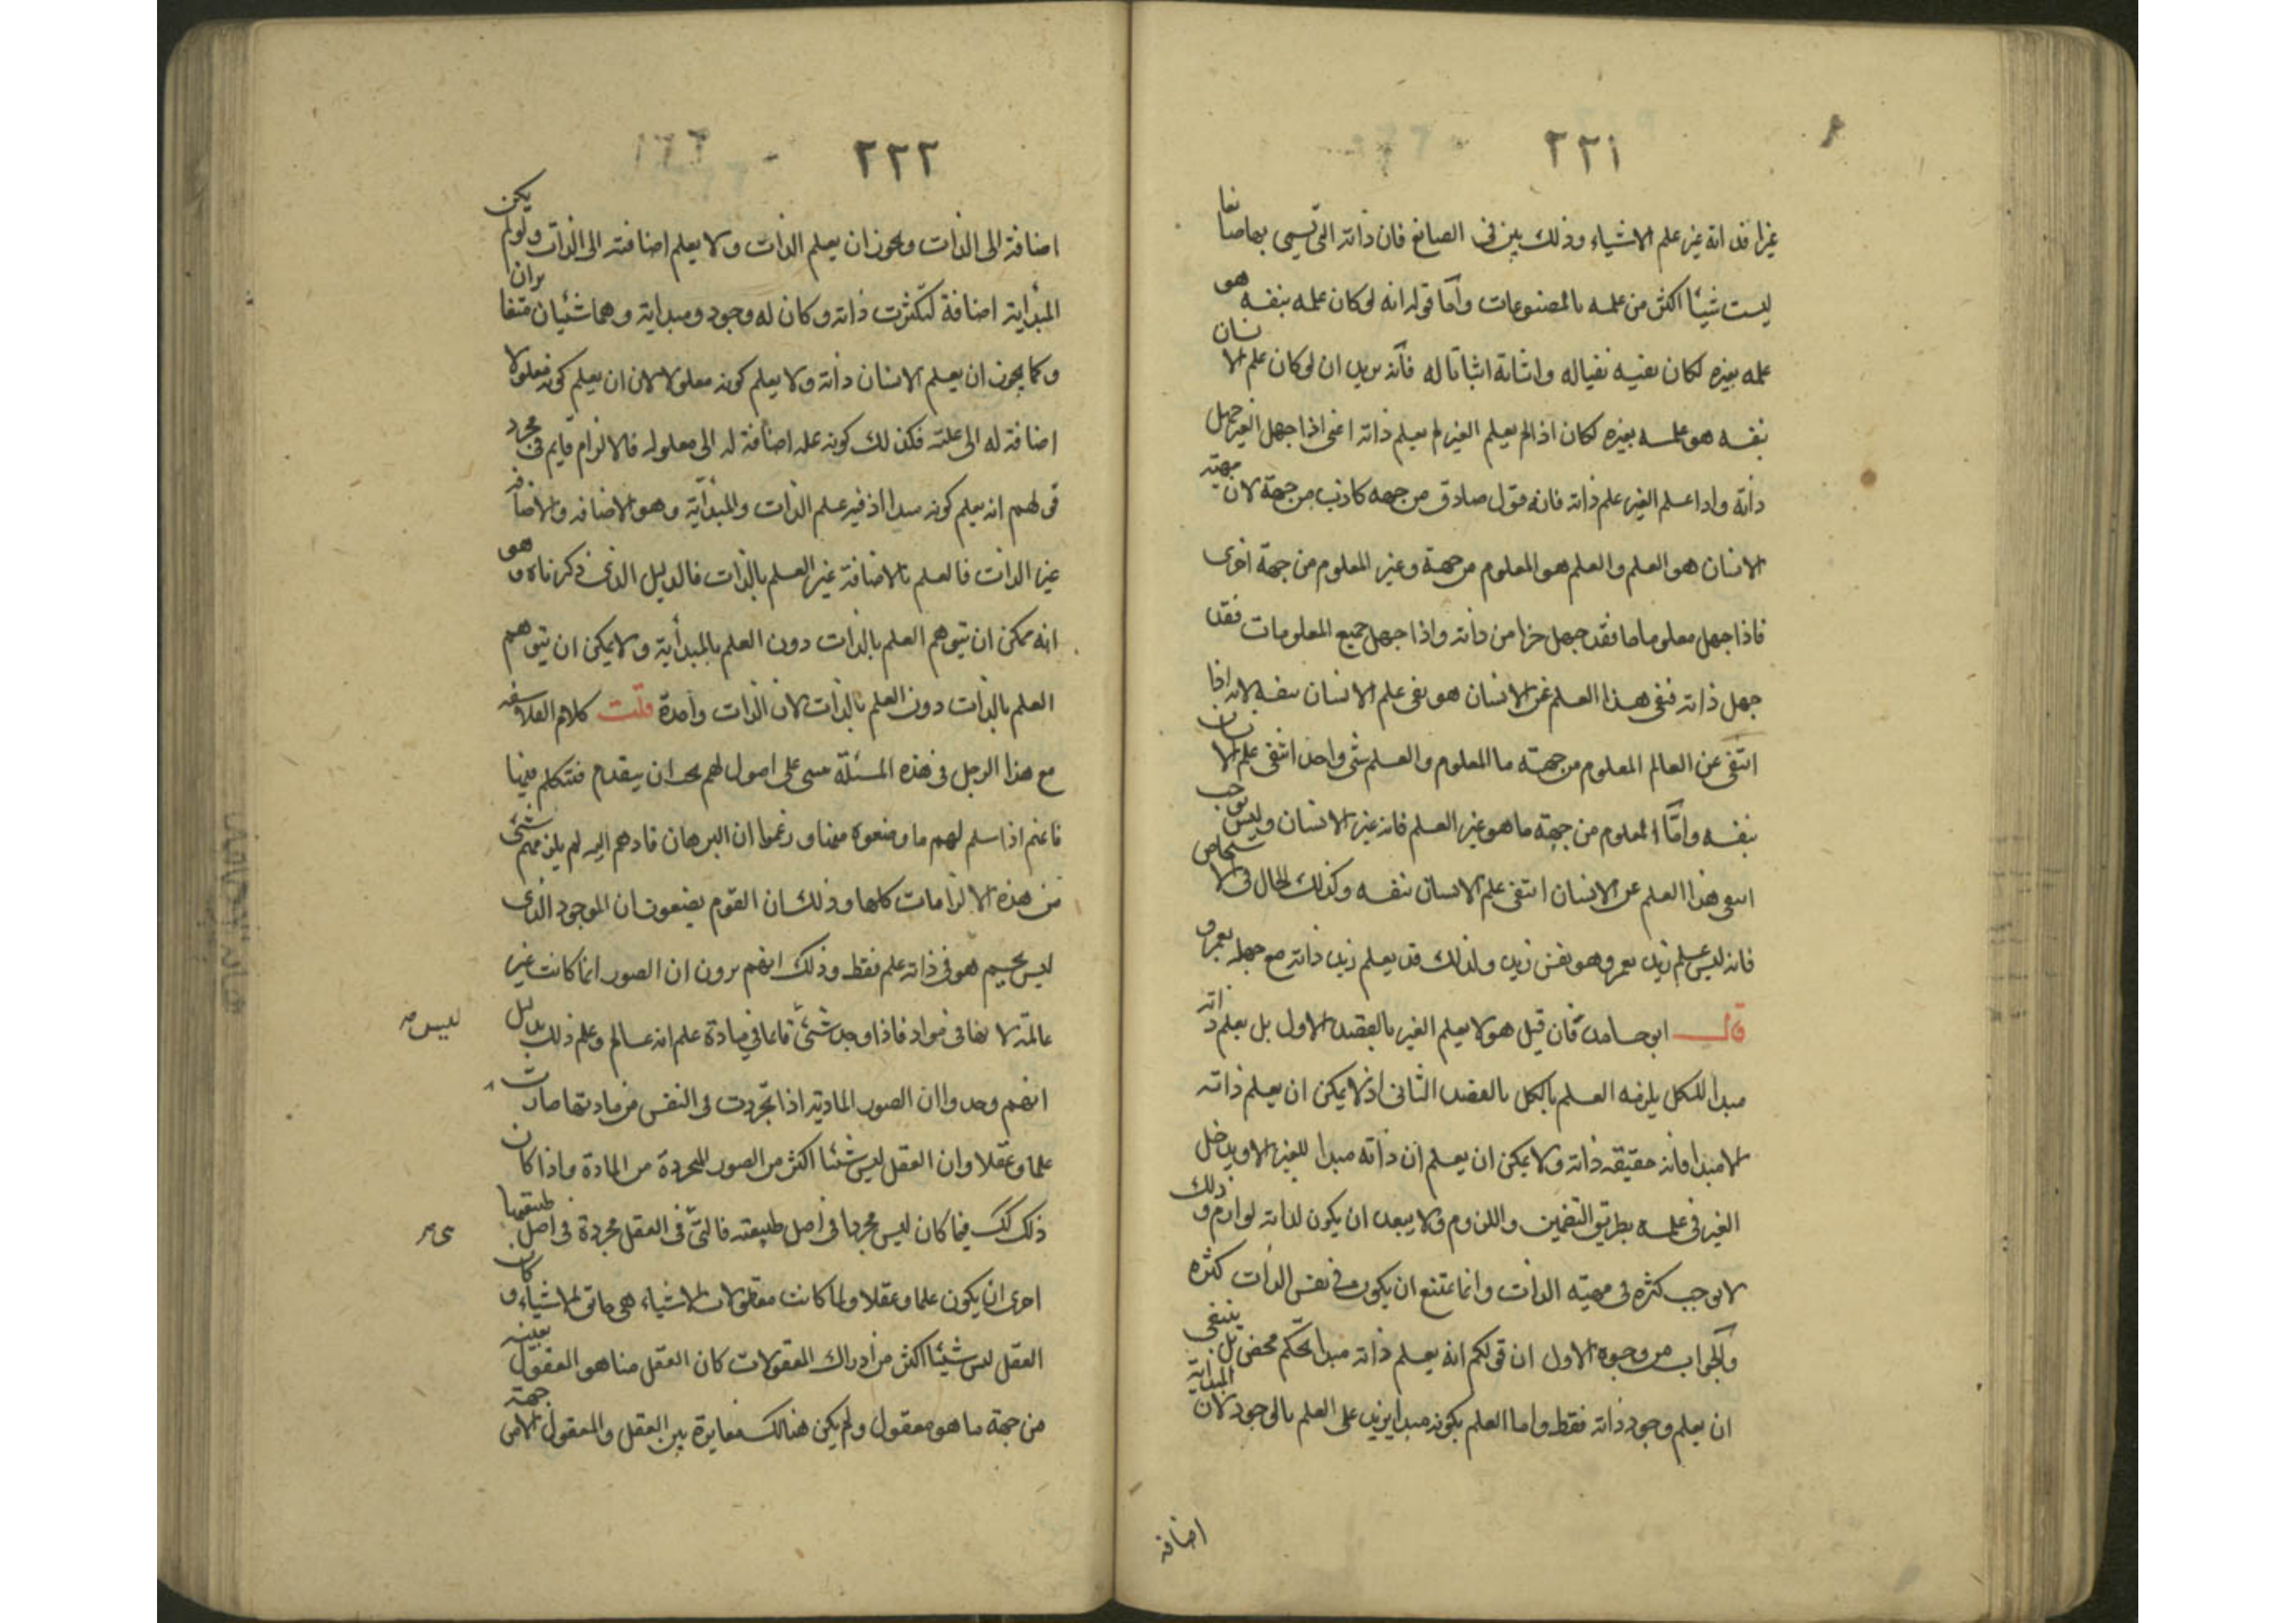 ٢٢١
غيرا فذاته غير علم الاشياء وذلك بين فى الصانع فان ذاته التى تسمى بها صانعا
ليست شيئا اكثر من علمه بالمصنوعات واما قوله انه لو كان علمه بنفسه هو
علمه بغيره لكان نفيه نفيا له واثباته اثباتا له فانه يريد ان لو كان علم الانسان
بنفسه هو علمه بغيره لكان اذا لم يعلم الغير لم يعلم ذاته اعنى اذا جهل الغير جهل
ذاته واذا علم الغير علم ذاته فانه قول صادق من جهه كاذب من جهة لان مهيته
الانسان هو العلم والعلم هو المعلوم من جهة وغير المعلوم من جهة اخرى
فاذا جهل معلوما ما فقد جهل جزا من ذاته واذا جهل جميع المعلومات فقد
جهل ذاته فنفى هذا العلم عن الانسان هو نفى علم الانسان بنفسه لانه اذا
انتفى عن العالم المعلوم من جهته ما المعلوم والعلم شئ واحد انتفى علم الانسان
بنفسه وامّا المعلوم من جهة ما هو غير العلم فانه غير الانسان وليس يوجب
انتفى هذا العلم عن الانسان انتفى علم الانسان بنفسه وكذلك الحال فى الاشخاص
فانه ليس علم زيد بعمرو هو نفس زيد ولذلك قد يعلم زيد ذاته مع جهله بعمرو
قال ابو حامد فان قيل هو لا يعلم الغير بالقصد الاول بل يعلم ذاته
مبدا للكل يلزمه العلم بالكل بالقصد الثانى اذ لا يمكن ان يعلم ذاته
الا مبدا فانه حقيقه ذاته ولا يمكن ان يعلم ان ذاته مبدا للغير الا ويدخل
الغير فى علمه بطريق التضمين واللزوم ولا يبعد ان يكون لذاته لوازم وذلك
لا يوجب كثره فى مهيته الذات وانما يمتنع ان يكون فى نفس الذات كثره
والجواب من وجوه الاول ان قولكم انه يعلم ذاته مبدا تحكم محض بل ينبغى
ان يعلم وجود ذاته فقط واما العلم بكونه مبدا يزيد على العلم بالوجود لان المبداية
اضافه
٢٢٢
اضافة الى الذات ويجوز ان يعلم الذات ولا يعلم اضافته الى الذات ولو لم يكن
المبدأية اضافة لتكثرت ذاته وكان له وجود ومبداية وهما شيئان متغايران
وكما يجوز ان يعلم الانسان ذاته ولا يعلم كونه معلولا لان ان يعلم كونه معلولا
اضافة له الى علته فكذلك كونه علة اضافة له الى معلوله فالالزام قايم فى مجرد
قولهم انه يعلم كونه مبدا اذ فيه علم الذات والمبدأية وهو الاضافه والاضافه
غير الذات فالعلم بالاضافة غير العلم بالذات فالدليل الذى ذكرناه وهو
انه ممكن ان يتوهم العلم بالذات دون العلم بالمبدأية ولا يمكن ان يتوهم
العلم بالذات دون العلم بالذات لان الذات واحدة قلت كلام الفلاسفه
مع هذا الرجل فى هذه المسئلة مبنى على اصول لهم يجب ان يتقدم فتتكلم فيها
فانهم اذا سلم لهم ما وضعوه منها وزعموا ان البرهان قادهم اليه لم يلزمهم شئ
من هذه الالزامات كلها وذلك ان القوم يضعون ان الموجود الذى
ليس بجسم هو فى ذاته علم فقط وذلك انهم يرون ان الصور انما كانت غير
عالمة لانها فى مواد فاذا وجد شئ قاعا فى مادة علم انه عالم وعلم ذلك بدليل
ليس صح
انهم وجدوا ان الصور المادية اذا تجردت فى النفس من مادتها صارت
علما وعقلا وان العقل ليس شيئا اكثر من الصور المجردة من المادة واذا كان
ذلك كك فيما كان ليس مجردا فى اصل طبيعته فالتى فى العقل مجردة فى اصل طبيعتها
احرى ان يكون علما وعقلا ولما كانت معقولات الاشياء هى حقايق الاشياء وكان
العقل ليس شيئا اكثر من ادراك المعقولات كان العقل منا هو المعقول بعينه
من جهة ما هو معقول ولم يكن هنالك مغايرة بين العقل والمعقول الا من جهة